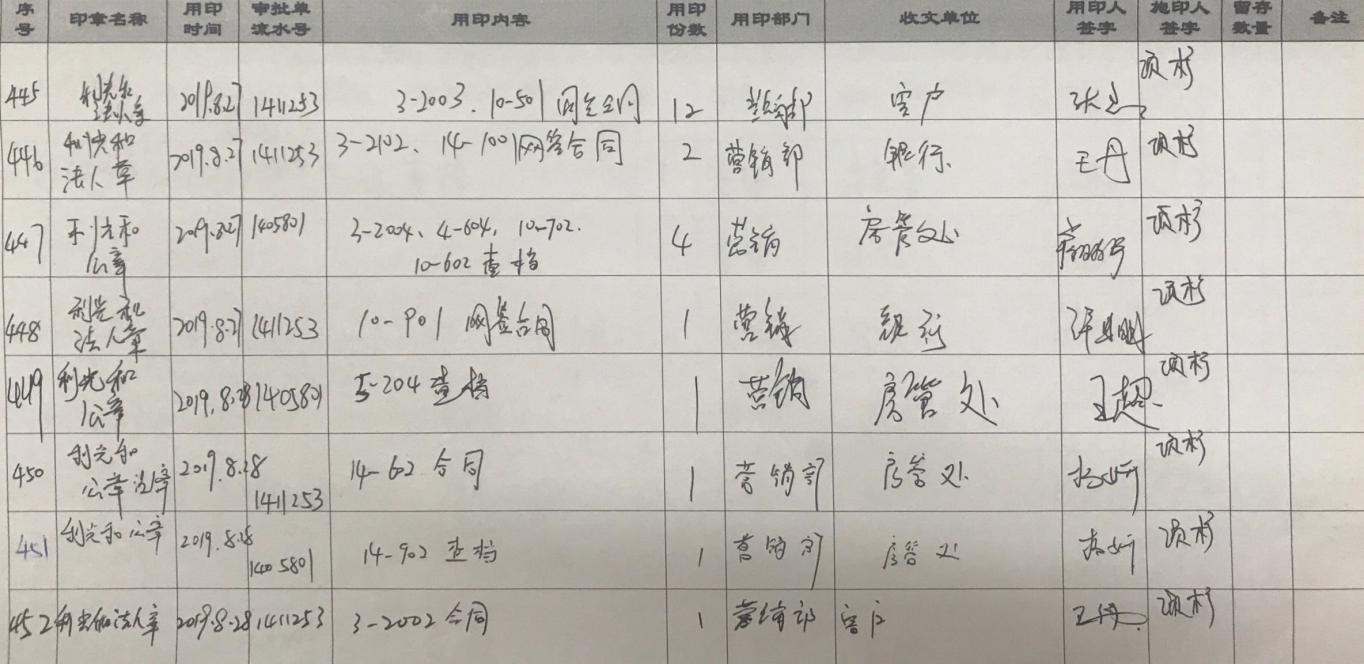 序号 印章名称 用印时间 审批单流水号 用印内容 用印份数 用印部门 收文单位 用印人签字 施印人签字 留存数量 备注
445 利光和法人章 2019.8.27 1411253 3-2003. 10-501网签合同 12 营销部 客户 项杉
446 利光和法人章 2019.8.27 1411253 3-2102、14-1001网签合同 2 营销部 银行. 王丹 项杉
447 利光和公章 2019.8.27 1405801 3-2004、4-604, 10-702. 10-602 查档 4 营销 房管处 项杉
448 利光和法人章 2019.8.27 1411253 10-901 网签合同 1 营销 银行 项杉
449 利光和公章 2019.8.28 1405801 5-204 查档 1 营销 房管处 王超 项杉
450 利光和公章法人章 2019.8.28 1411253 14-602 合同 1 营销部 房管处 项杉
451 利光和公章 2019.8.28 1405801 14-902 查档 1 营销部 房管处 项杉
452 利光和法人章 2019.8.28 1411253 3-2002 合同 1 营销部 客户 王丹 项杉